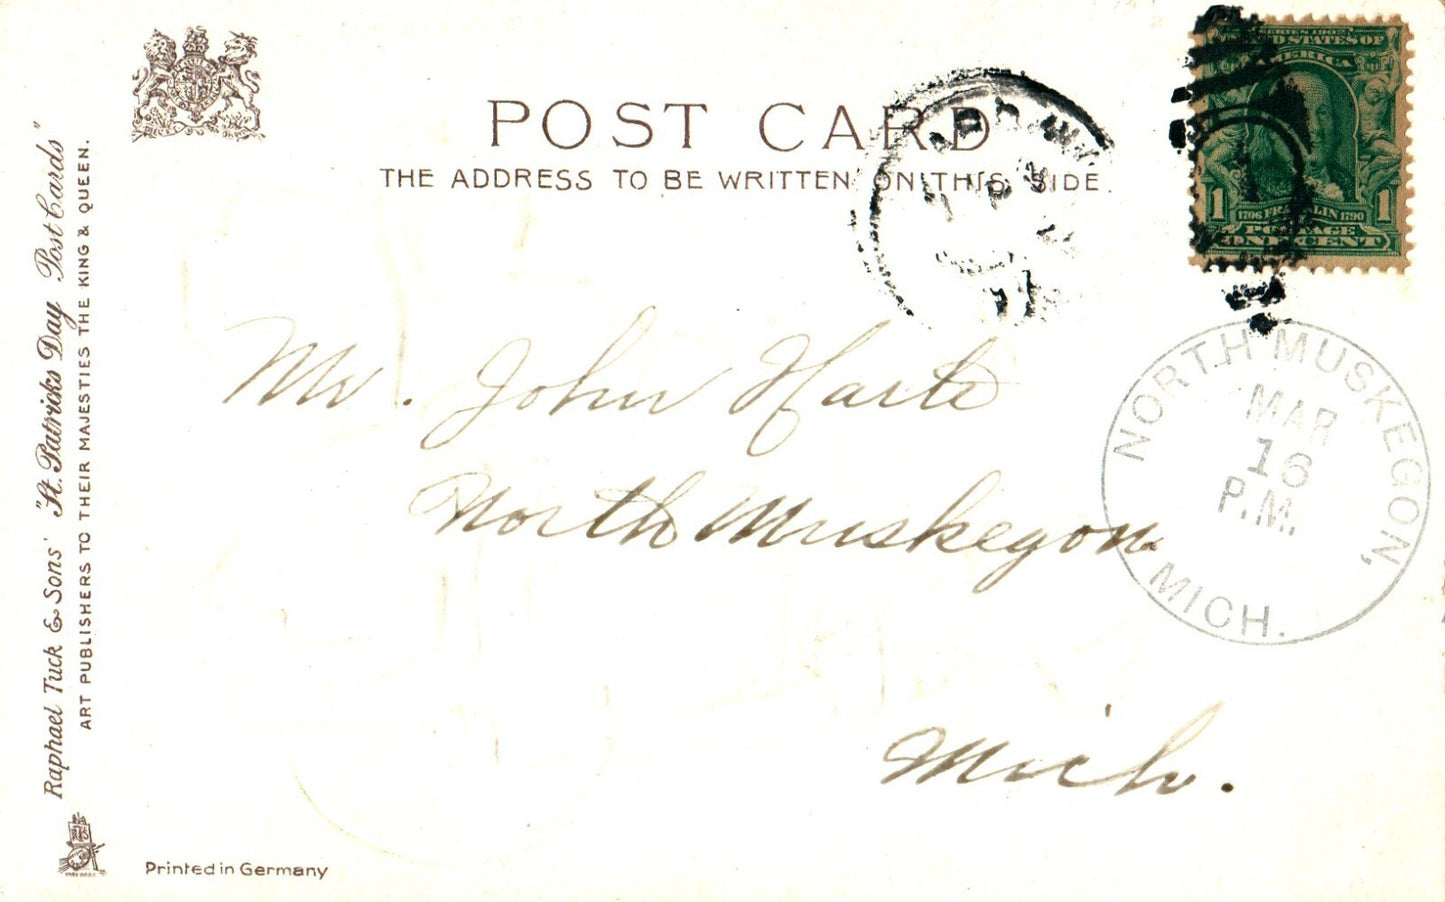 POST CARD
THE ADDRESS TO BE WRITTEN ON THIS SIDE.
SERIES 1902
UNITED STATES OF
AMERICA
1 1706 FRANKLIN 1790 1
POSTAGE
ONE CENT
NORTH MUSKEGON,
MAR
16
P.M.
MICH.
Mr. John Harte
North Muskegon
Mich.
Raphael Tuck & Sons' "St. Patricks Day Post Cards"
ART PUBLISHERS TO THEIR MAJESTIES THE KING & QUEEN.
Printed in Germany